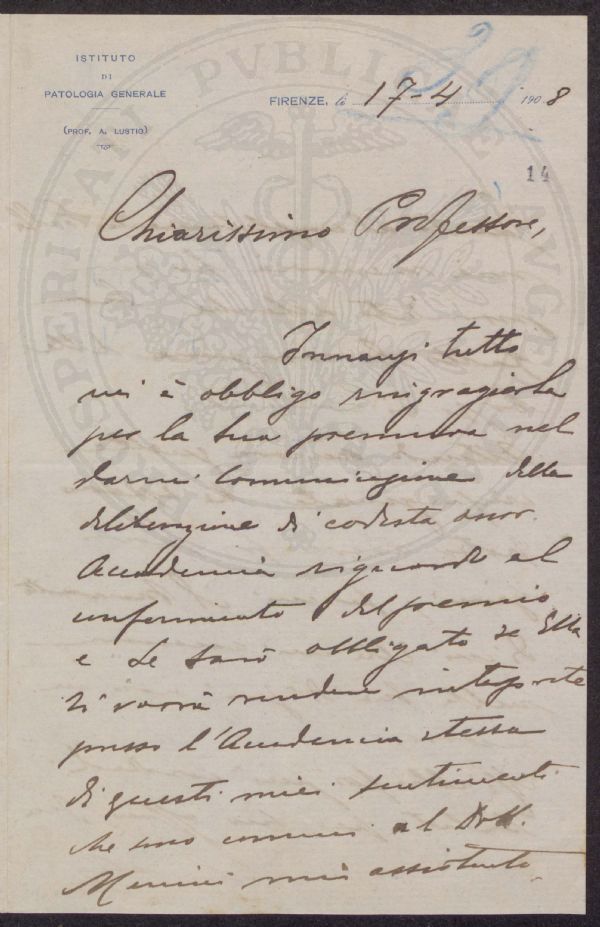 ISTITUTO
DI
PATOLOGIA GENERALE
(PROF. A. LUSTIG)
FIRENZE, li 17-4 1908
14
PROSPERITATI PVBLICAE AVGENDAE
Chiarissimo Professore,
Innanzi tutto
mi è obbligo ringraziarla
per la Sua premura nel
darmi comunicazione della
deliberazione di codesta onor.
Accademia riguardo al
conferimento del premio
e Le sarò obbligato se Ella
si vorrà rendere interprete
presso l'Accademia stessa
di questi miei sentimenti
che sono comuni al Dott.
mio assistente.